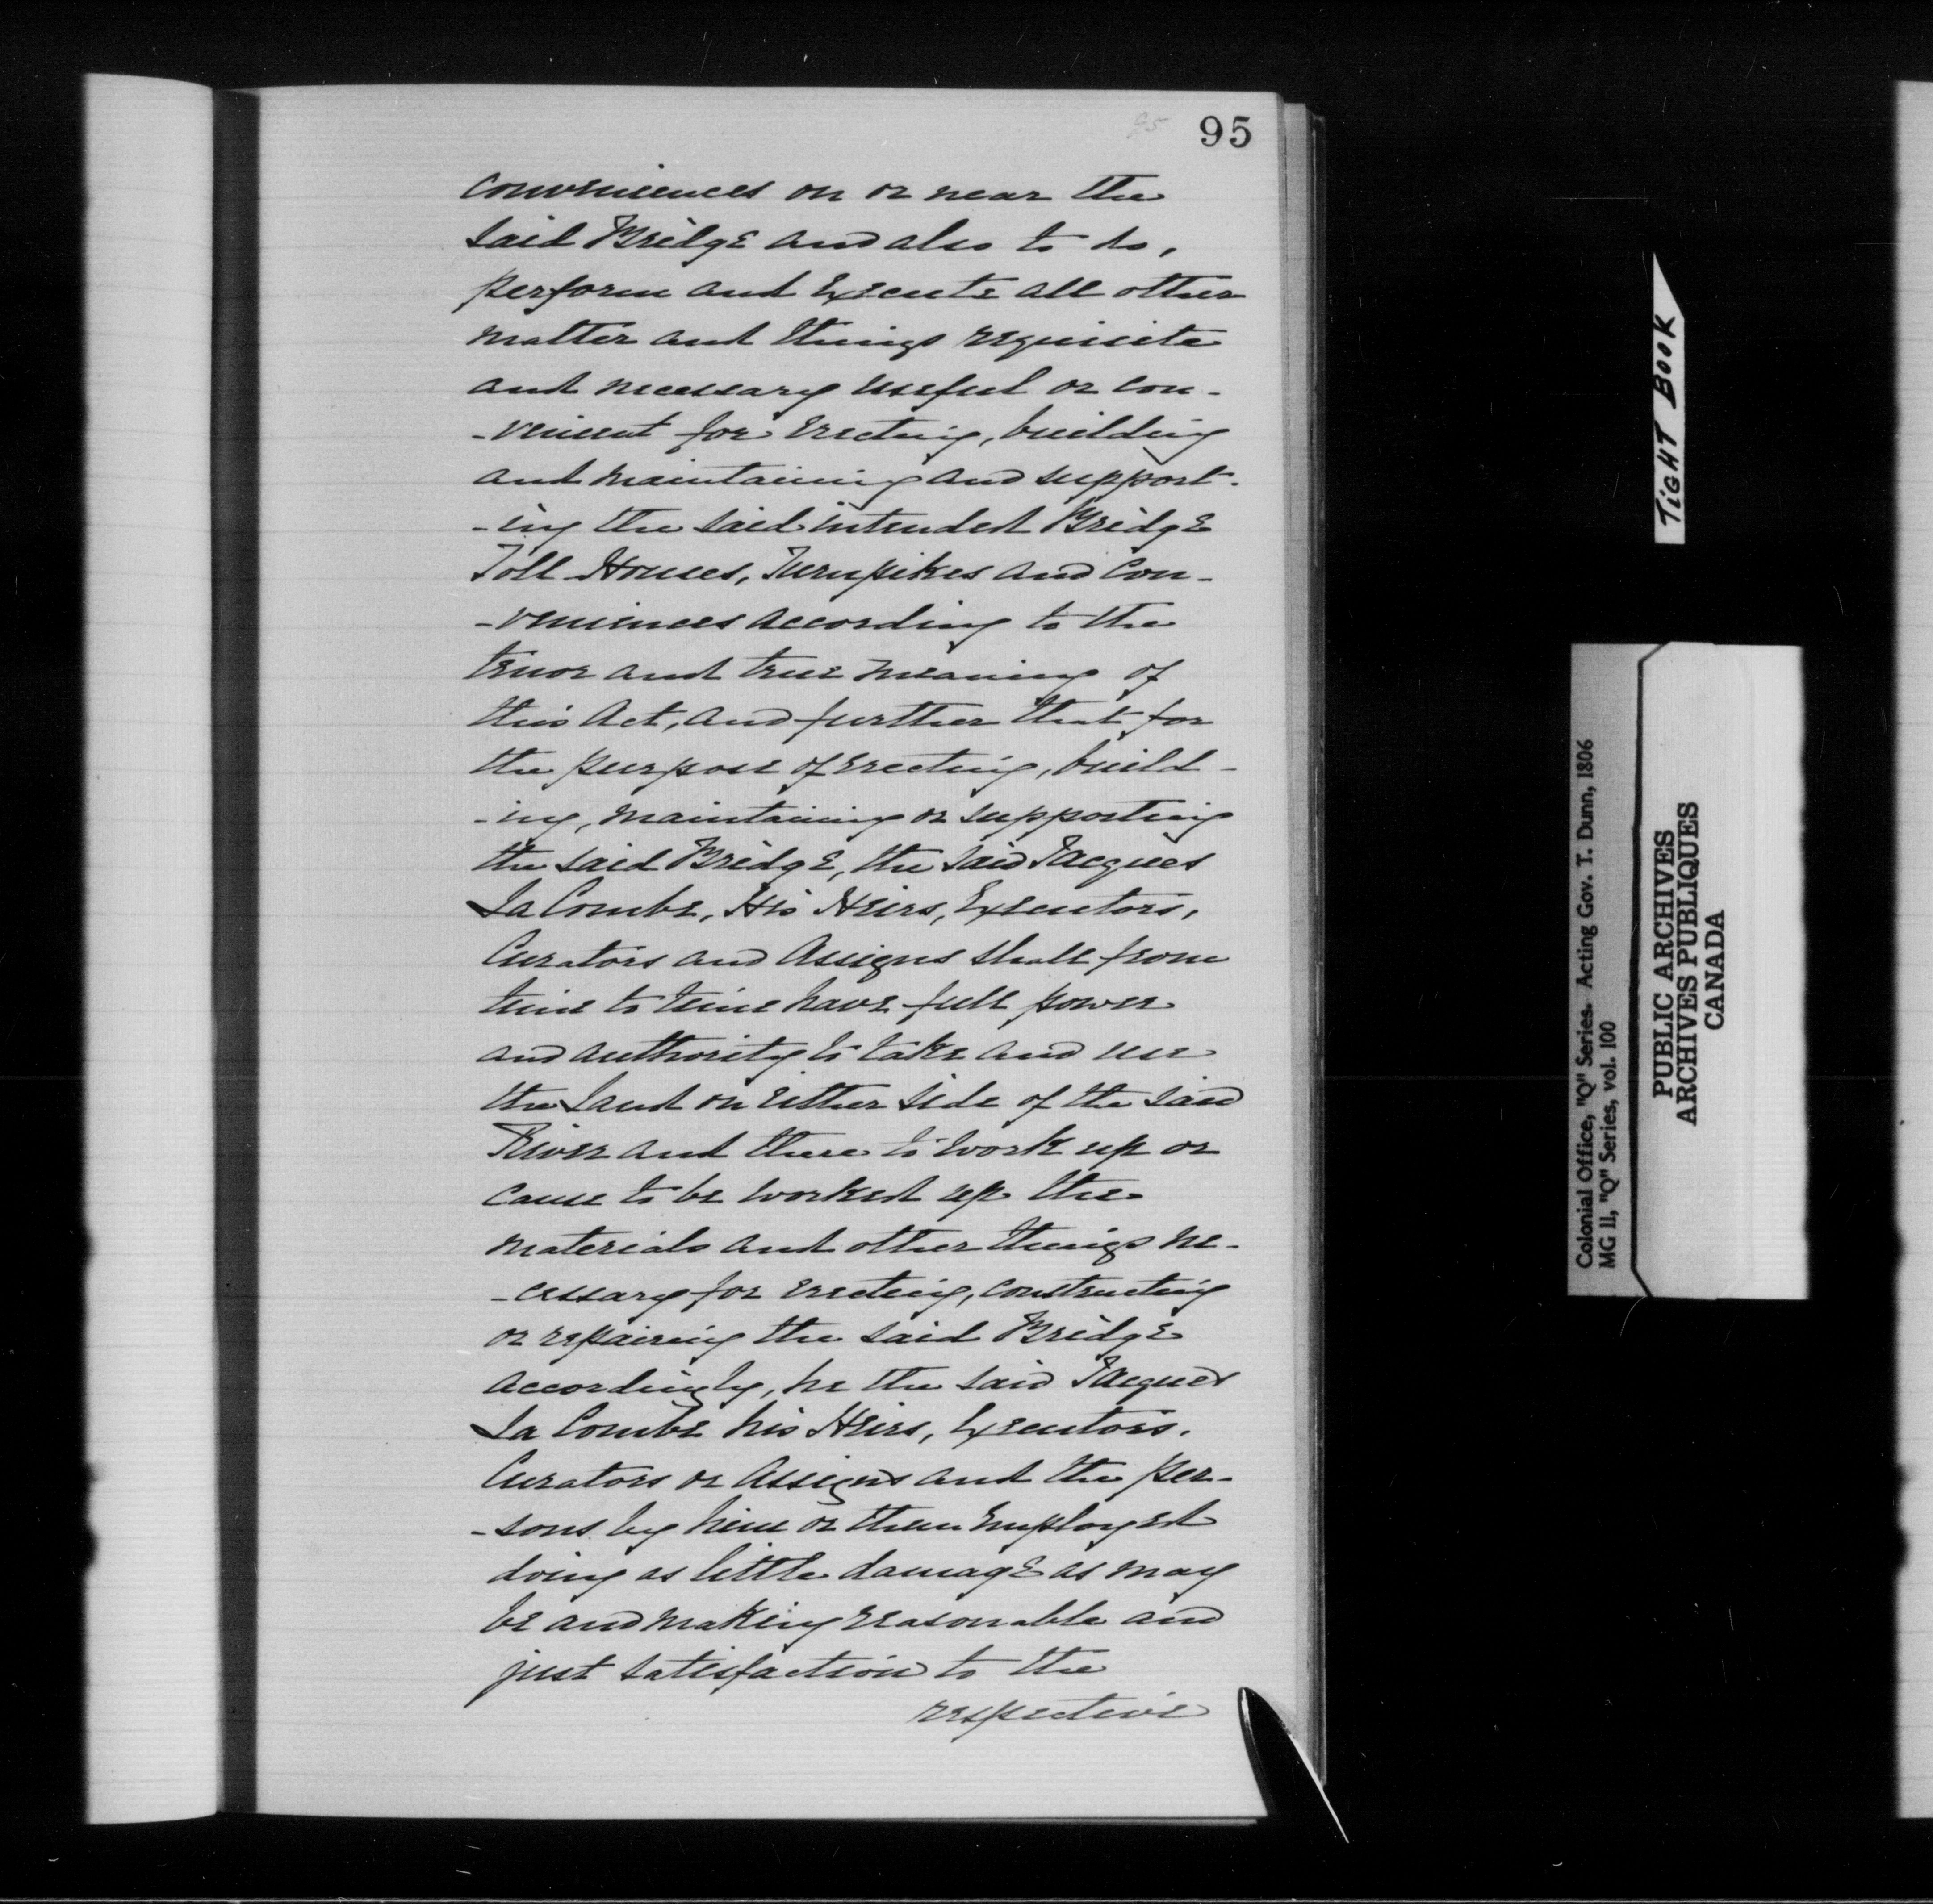 95
95
conveniences on or near the
said Bridge and also to do,
perform and Execute all other
matter and things requisite
and necessary useful or con-
-venient for Erecting, building
and maintaining and support-
-ing the said intended Bridge
Toll Houses, Turnpikes and Con-
-veniences according to the
tenor and true meaning of
this Act, and further that for
the purpose of Erecting, build-
-ing, maintaining or supporting
the said Bridge, the said Jacques
La Combe, His Heirs, Executors,
Curators and Assigns shall from
time to time have full power
and authority to take and use
the Land on Either side of the said
River and there to work up or
cause to be worked up the
materials and other things ne-
-cessary for Erecting, constructing
or repairing the said Bridge
accordingly, he the said Jacques
La Combe his Heirs, Executors,
Curators or Assigns and the per-
-sons by him or them Employed
doing as little damage as may
be and making reasonable and
just satisfaction to the
respective
TIGHT BOOK
Colonial Office, "Q" Series. Acting Gov. T. Dunn, 1806
MG 11, "Q" Series, vol. 100
PUBLIC ARCHIVES
ARCHIVES PUBLIQUES
CANADA